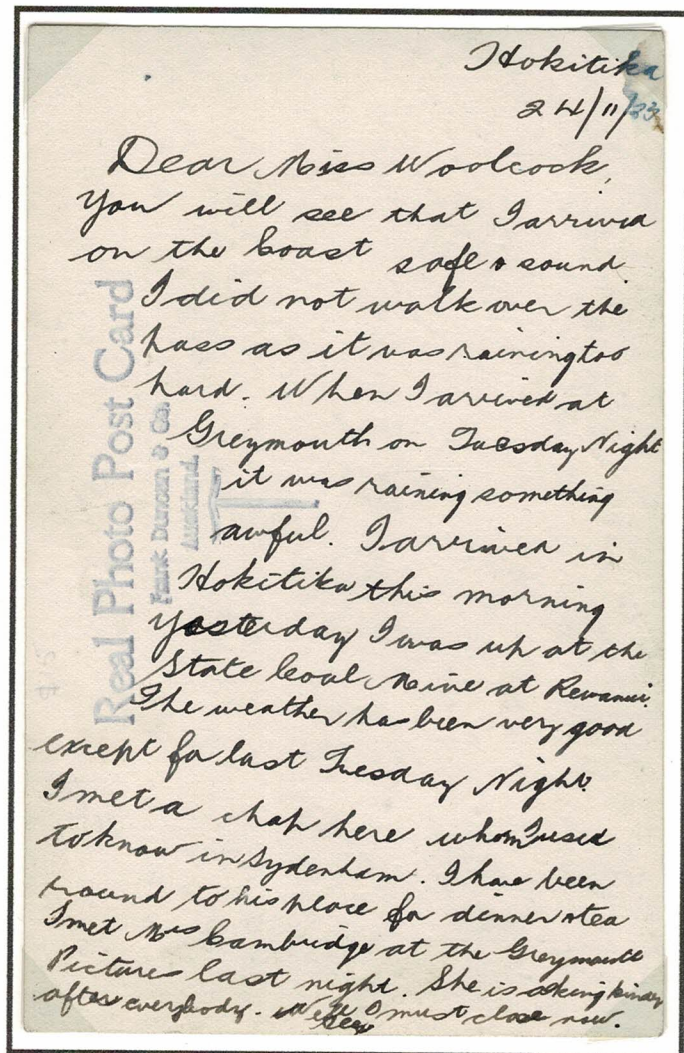 Hokitika
24/11/33
Dear Miss Woolcock,
You will see that I arrived
on the Coast safe & sound
I did not walk over the
Pass as it was raining too
hard. When I arrived at
Greymouth on Tuesday Night
it was raining something
awful. I arrived in
Hokitika this morning
Yesterday I was up at the
State Coal Mine at Rewanui.
The weather has been very good
except for last Tuesday Night.
I met a chap here whom I used
to know in Sydenham. I have been
round to his place for dinner & tea
I met Mrs Cambridge at the Greymouth
Pictures last night. She is asking kindly
after everybody. Well I must close now.
Real Photo Post Card
Frank Duncan & Co.
Auckland.